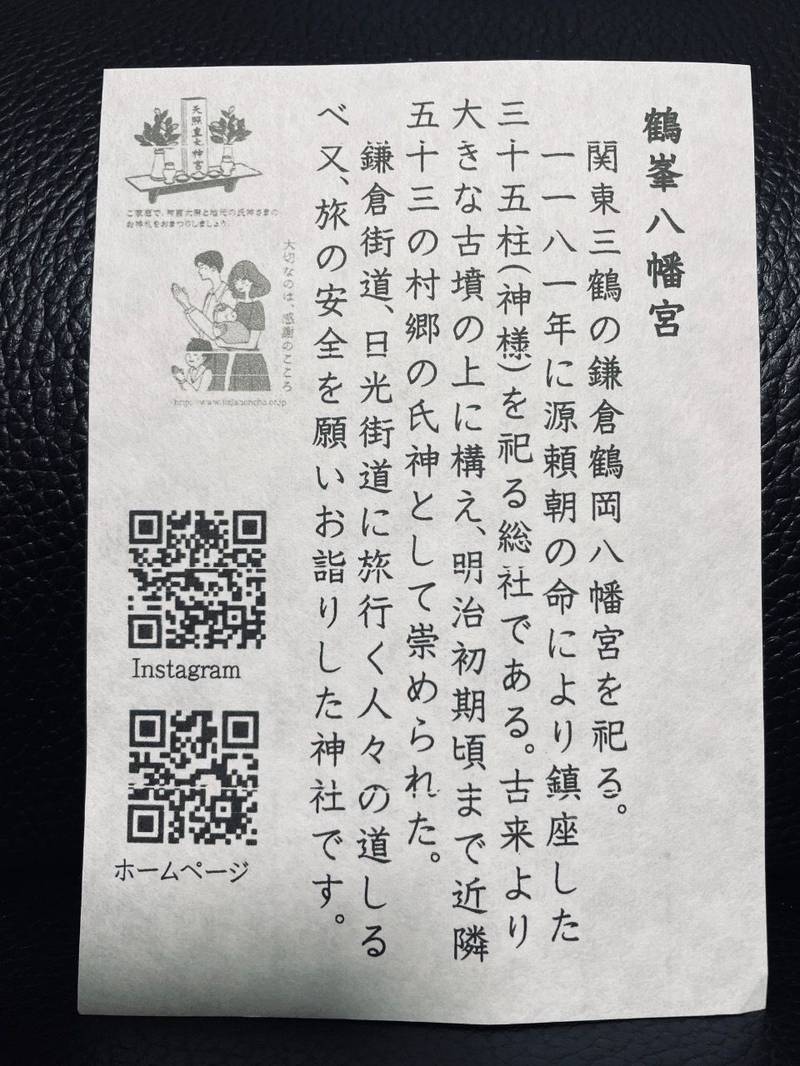 鶴峯八幡宮
関東三鶴の鎌倉鶴岡八幡宮を祀る。
一一八一年に源頼朝の命により鎮座した
三十五柱(神様)を祀る総社である。古来より
大きな古墳の上に構え、明治初期頃まで近隣
五十三の村郷の氏神として崇められた。
鎌倉街道、日光街道に旅行く人々の道しる
べ又、旅の安全を願いお詣りした神社です。
天照皇大神宮
ご家庭で、神宮大麻と地元の氏神さまの
お神札をおまつりしましょう。
大切なのは、感謝のこころ
http://www.jinjahoncho.or.jp
Instagram
ホームページ